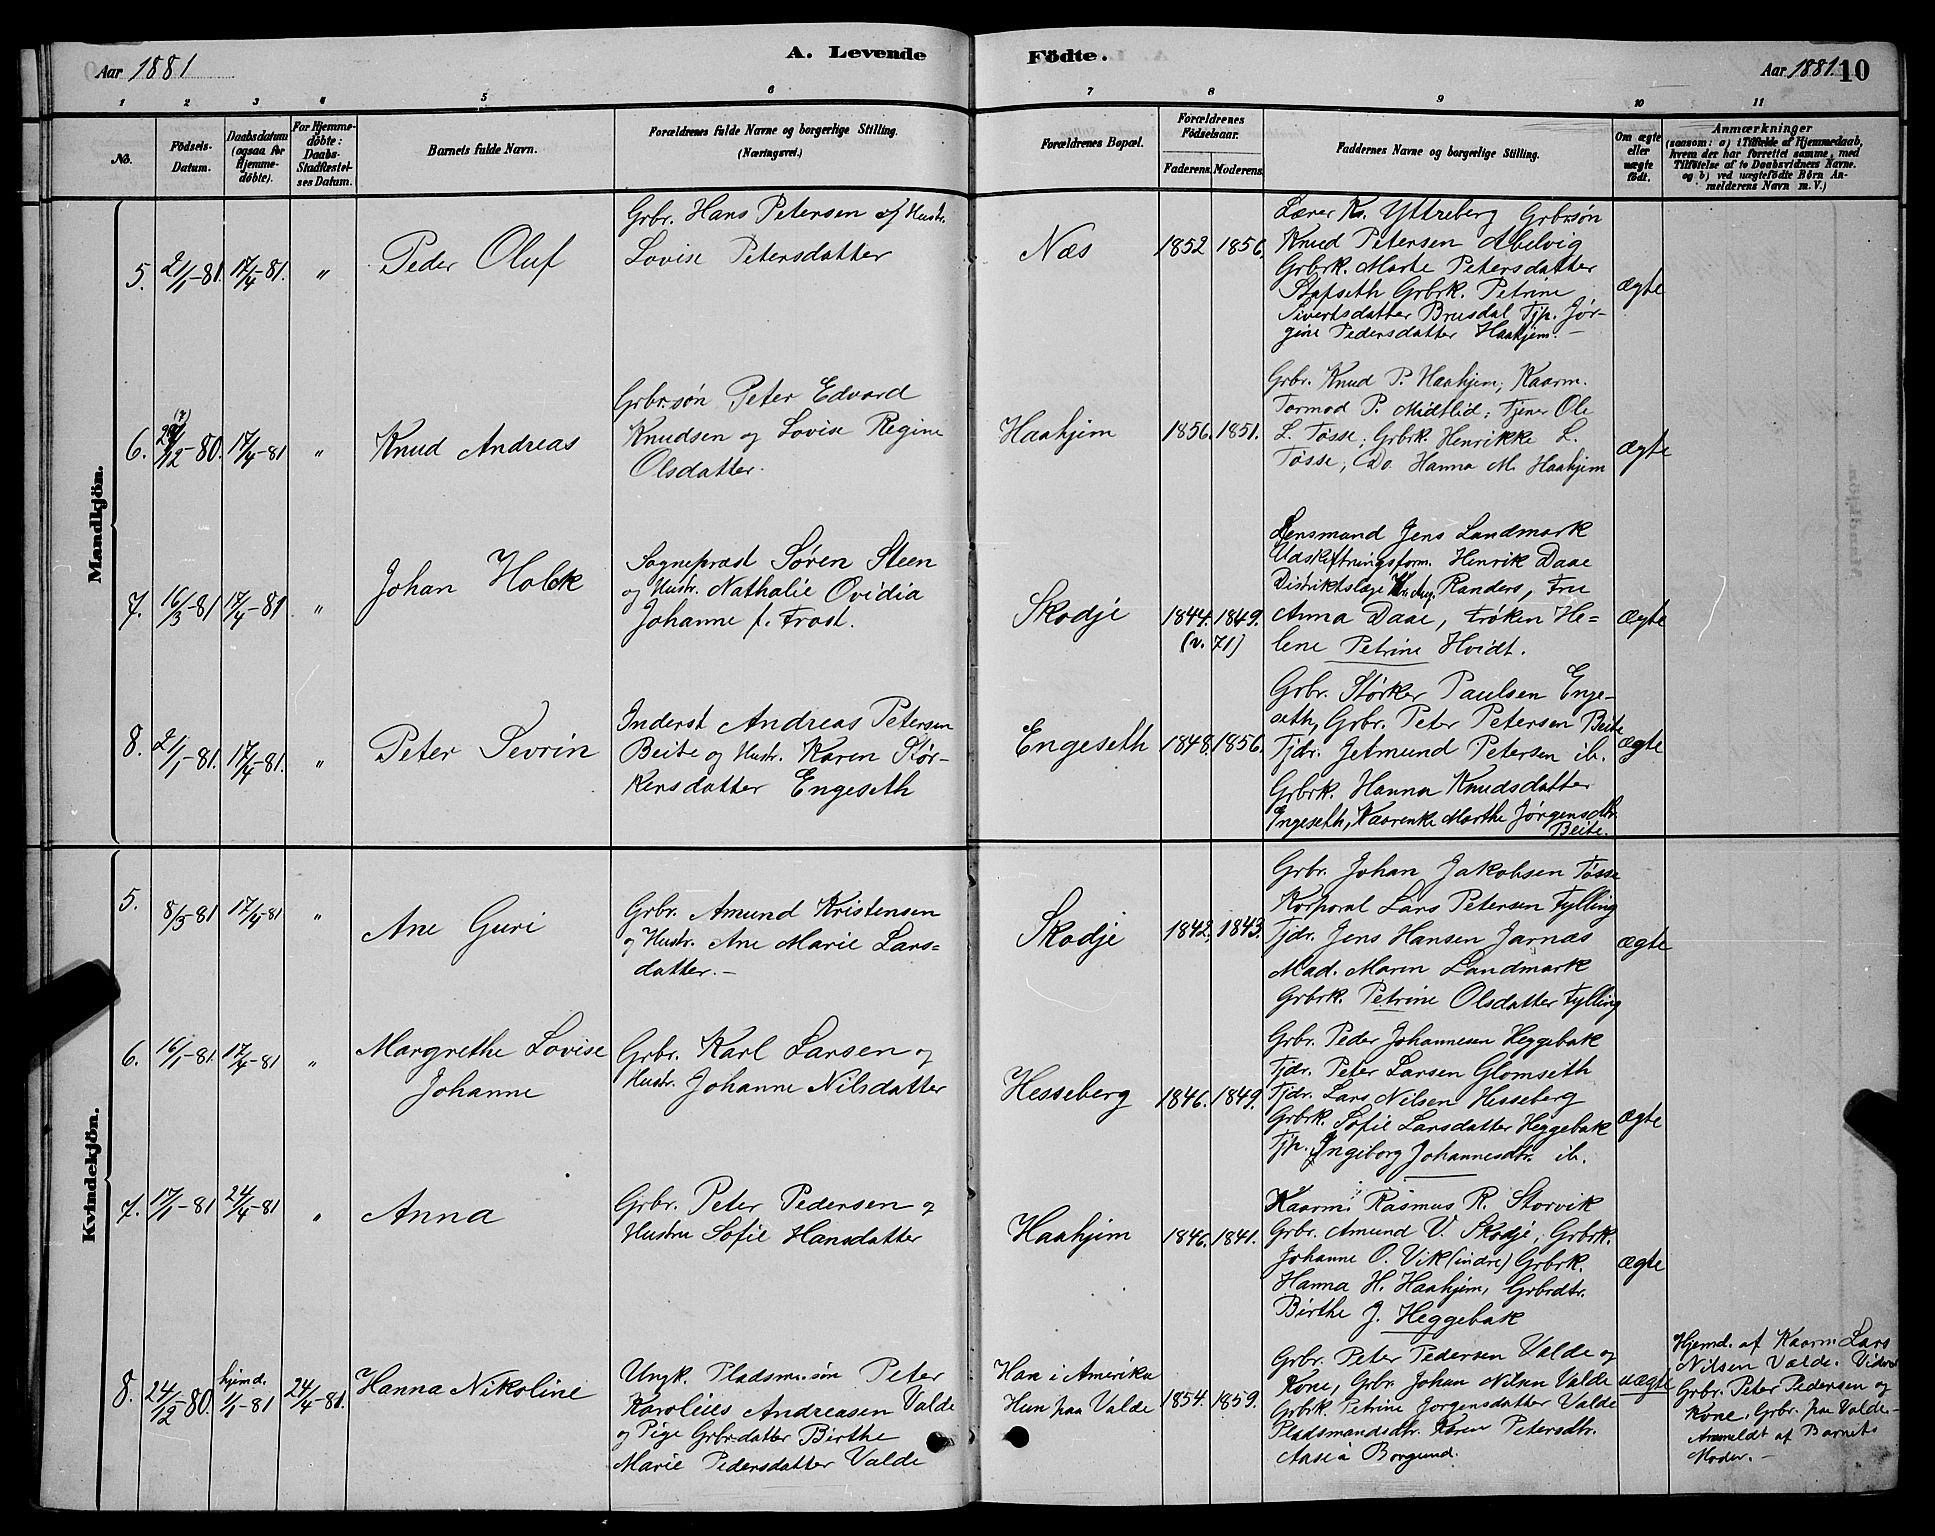 Aar 1881
A. Levende
Födte.
Aar 1881
10
1 2 3 4 5 6 7 8 9 10 11
No.
Födsels-
Datum.
Daabsdatum
(ogsaa for
Hjemme-
döbte).
For Hjemme-
döbte:
Daabs-
Stadfæstel-
ses Datum.
Barnets fulde Navn.
Forældrenes fulde Navne og borgerlige Stilling.
(Næringsvei.)
Forældrenes Bopæl.
Forældrenes
Födselsaar.
Faderens. Moderens.
Faddernes Navne og borgerlige Stilling.
Om ægte
eller
uægte
födt.
Anmærkninger
(saasom: a) i Tilfælde af Hjemmedaab,
hvem der har forrettet samme, med
Tilföielse af to Daabsvidners Navne.
og b) ved uægtefödte Börn An-
melderens Navn m. V.)
Mandkjön.
5. 21/1-81. 17/4-81. "
Peder Oluf
Grbr. Hans Petersen og Hustr.
Lovise Petersdatter
Næs
1852 1856.
Lærer Ks. Yttreberg Grbrsøn
Knud Petersen Abelvig
Grbrk. Marte Petersdatter
Stafseth Grbrk. Petrine
Sivertsdatter Brusdal Tjp. Jør-
gine Pedersdatter Haahjem. –
ægte
6. /12-80. 17/4-81 "
Knud Andreas
Grbr.søn Peter Edvard
Knudsen og Lovise Regine
Olsdatter.
Haahjem
1856. 1851.
Grbr. Knud P. Haahjem, Kaarm.
Tormod P. Midtlid; Tjener Ole
L. Tøsse; Grbrk. Henrikke L.
Tøsse; Do. Hanna M. Haahjem
ægte
7. 16/3-81 17/4-81 "
Johan Holck
Sognepræst Søren Steen
og Hustr. Nathalie Ovidia
Johanne f. Frost.
Skodje
1844. 1849.
(v. 71)
Lensmand Jens Landmark
Udskiftningsform. Henrik Daae
Distriktslæge Randers, Fru
Anna Daae, Frøken He=
lene Petrine Hvidt.
ægte
8. 2/1-81. 17/4-81. "
Peter Sevrin
Inderst Andreas Petersen
Beite og Hustr. Karen Stør-
kersdatter Engeseth
Engeseth
1848. 1856.
Grbr. Størker Paulsen Enge-
seth, Grbr. Peter Petersen Beite
Tjdr. Jetmund Petersen ib.
Grbrk. Hanna Knudsdatter
Engeseth, Kaarenke Marthe Jørgensdtr.
Beite.
ægte
Kvindekjön.
5. 8/3-81 17/4-81 "
Ane Guri
Grbr. Amund Kristensen
og Hustr. Ane Marie Lars=
datter. –
Skodje
1842. 1843.
Grbr. Johan Jakobsen Tøsse
Korporal Lars Petersen Fylling
Tjdr. Jens Hansen Jarnæs
Mad. Maren Landmark
Grbrk. Petrine Olsdatter Fylling
ægte
6. 16/1-81. 17/4-81 "
Margrethe Lovise
Johanne
Grbr. Karl Larsen og
Hustr. Johanne Nilsdatter
Hesseberg
1846. 1849.
Grbr. Peder Johannesen Heggebak
Tjdr. Peter Larsen Glomseth
Tjdr. Lars Nilsen Hesseberg
Grbrk. Sofie Larsdatter Heggebak
Tjp. Ingiborg Johannesdtr. ib.
ægte
7. 17/1-81 24/4-81 "
Anna
Grbr. Peter Pedersen og
Hustru Sofie Hansdatter
Haahjem
1846. 1841.
Kaarm. Rasmus R. Storvik
Grbr. Amund V. Skodje, Grbrk.
Johanne O. Vik (indre) Grbrk.
Hanna H. Haahjem, Grbrdtr.
Birthe J. Heggebak
ægte
8. 24/12-80. hjemd. 1/1-81 24/4-81.
Hanna Nikoline
Ungk. Pladsm.søn Peter
Karolius Andreasen Valde
og Pige Grbrdatter Birthe
Marie Pedersdatter Valde
Han i Amerika
Hun paa Valde
1854. 1859.
Grbr. Peter Pedersen Valde og
Kone, Grbr. Johan Nilsen Valde
Grbrk. Petrine Jørgensdatter Valde
Pladsmandsdtr. Karen Petersdtr.
Aase i Borgund.
uægte
Hjemd. af Kaarm Lars
Nilsen Valde. Vidner
Grbr. Peter Pedersen og
Kone, Grbr. paa Valde –
Anmeldt af Barnets
Moder. –